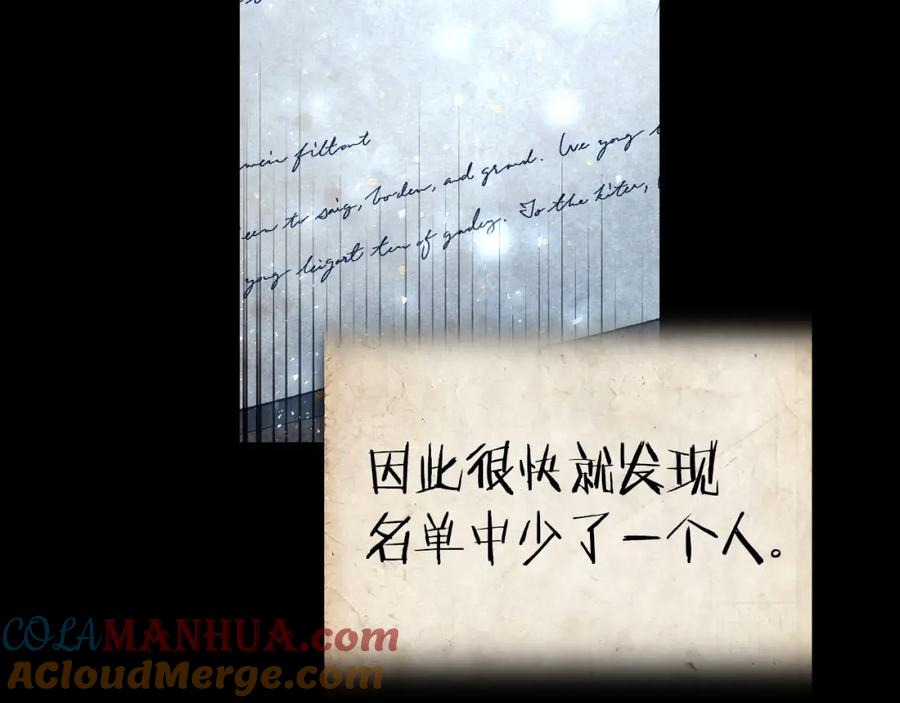 filtout
to saig, boden, and grand. We yong
yong leigart ten of gadey. To the kiter,
因此很快就发现
名单中少了一个人。
COLAMANHUA.com
ACloudMerge.com